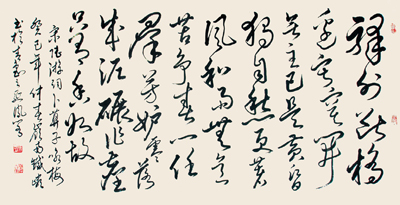 驛外斷橋
邊寂寞開
無主已是黄昏
獨自愁更著
風和雨無意
苦争春一任
羣芳妒零落
成泥碾作塵
只有香如故
宋陸游詞卜算子咏梅
癸巳年仲春
書於